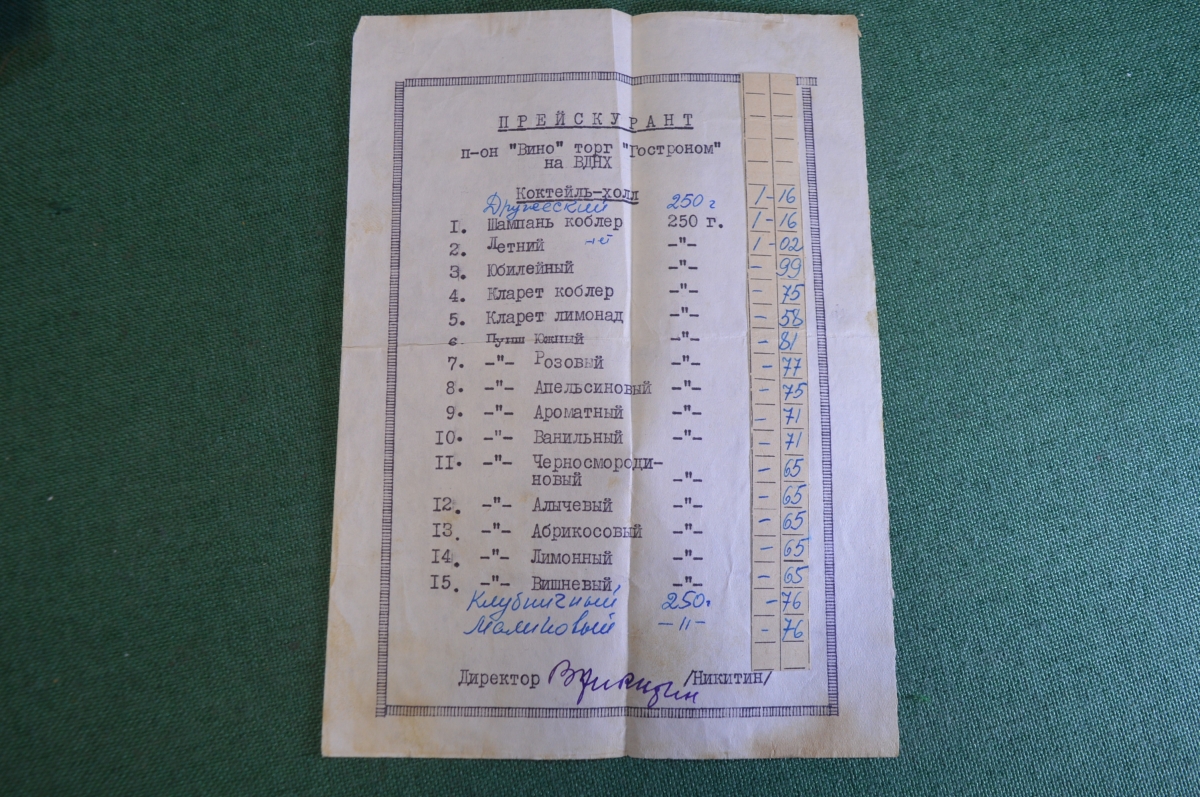 ПРЕЙСКУРАНТ
п-он "Вино" торг "Гостроном"
на ВДНХ
Коктейль-холл
Дружеский 250 г 1-16
I. Шампань коблер 250 г. 1-16
2. Летний -"- 1-02
3. Юбилейный -"- -99
4. Кларет коблер -"- -75
5. Кларет лимонад -"- -58
6 Пунш Южный -"- -81
7. -"- Розовый -"- -77
8. -"- Апельсиновый -"- -75
9. -"- Ароматный -"- -71
IO. -"- Ванильный -"- -71
II. -"- Черносмороди-
новый -"- -65
I2. -"- Алычевый -"- -65
I3. -"- Абрикосовый -"- -65
I4. -"- Лимонный -"- -65
I5. -"- Вишневый -"- -65
Клубничный 250г -76
Малиновый -"- -76
Директор /Никитин/